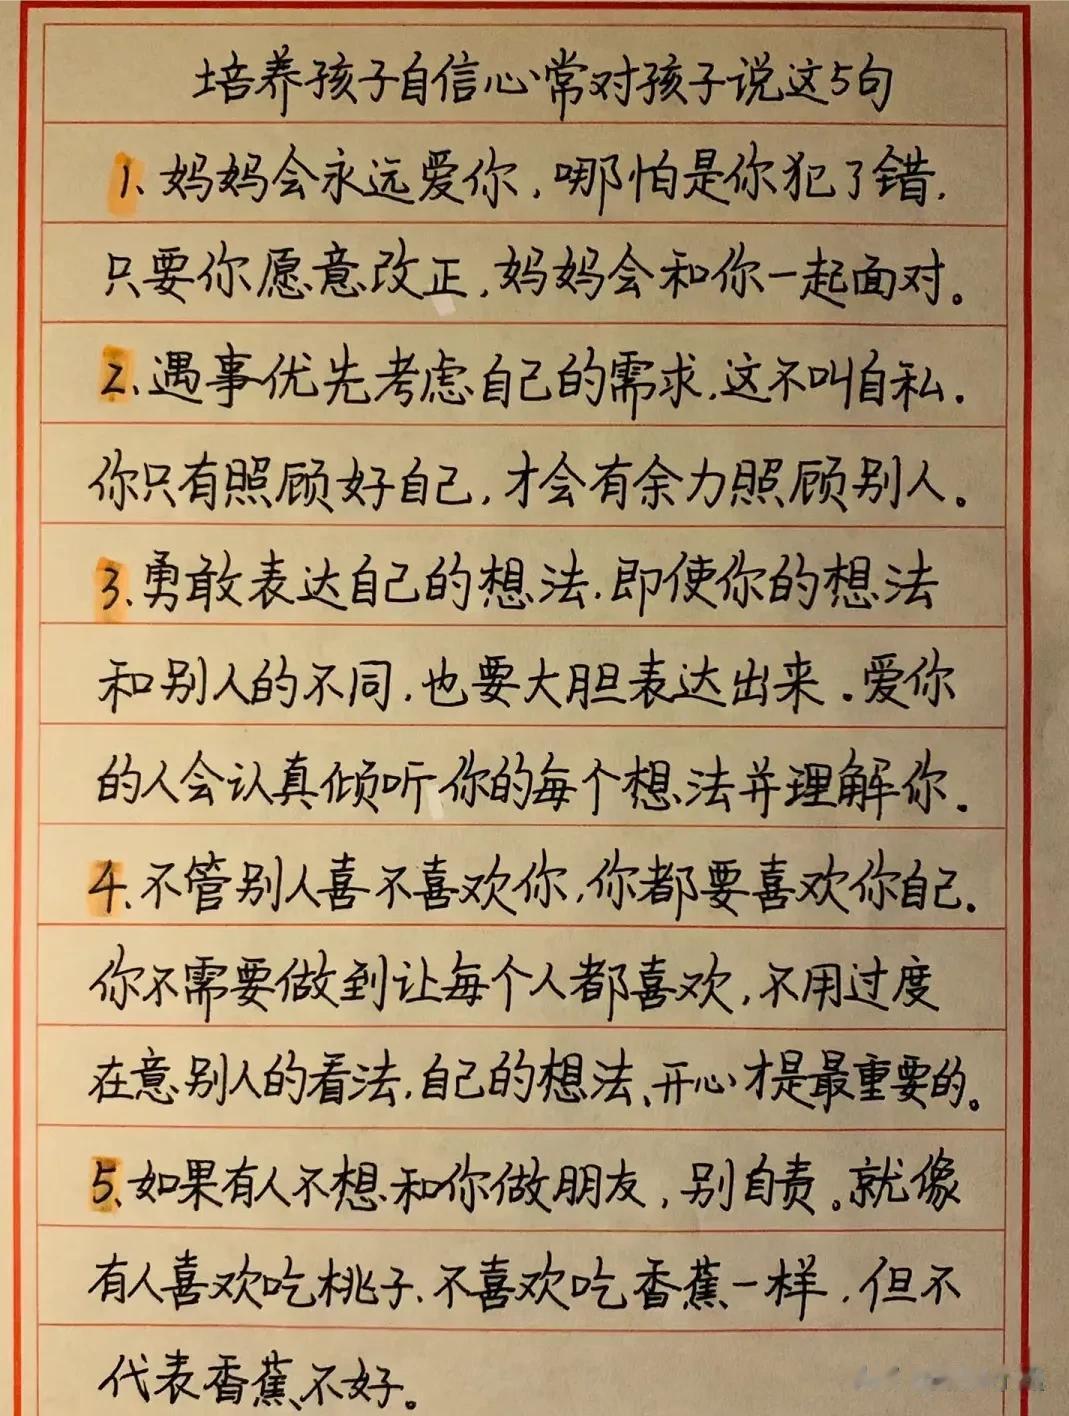 培养孩子自信心常对孩子说这5句
1、妈妈会永远爱你，哪怕是你犯了错，
只要你愿意改正，妈妈会和你一起面对。
2、遇事优先考虑自己的需求，这不叫自私。
你只有照顾好自己，才会有余力照顾别人。
3、勇敢表达自己的想法，即使你的想法
和别人的不同，也要大胆表达出来。爱你
的人会认真倾听你的每个想法并理解你。
4、不管别人喜不喜欢你，你都要喜欢你自己。
你不需要做到让每个人都喜欢，不用过度
在意别人的看法，自己的想法、开心才是最重要的。
5、如果有人不想和你做朋友，别自责。就像
有人喜欢吃桃子、不喜欢吃香蕉一样，但不
代表香蕉不好。